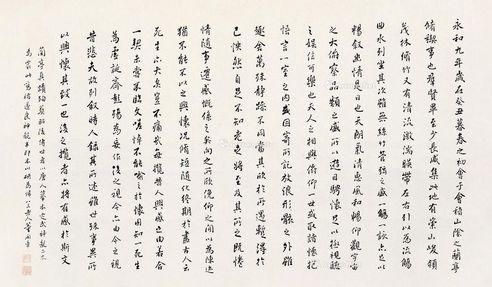 永和九年歲在癸丑暮春之初會于會稽山陰之蘭亭
脩稧事也群賢畢至少長咸集此地有崇山峻領
茂林脩竹又有清流激湍暎帶左右引以為流觴
曲水列坐其次雖無絲竹管絃之盛一觴一詠亦足以
暢敘幽情是日也天朗氣清惠風和暢仰觀宇宙
之大俯察品類之盛所以遊目騁懷足以極視聽
之娛信可樂也夫人之相與俯仰一世或取諸懷抱
悟言一室之內或因寄所託放浪形骸之外雖
趣舍萬殊靜躁不同當其欣於所遇暫得於
己怏然自足不知老之將至及其所之既惓
情隨事遷感慨係之矣向之所欣俛仰之間以為陳迹
猶不能不以之興懷況脩短隨化終期於盡古人云
死生亦大矣豈不痛哉每攬昔人興感之由若合
一契未嘗不臨文嗟悼不能喻之於懷固知一死生
為虛誕齊彭殤為妄作後之視今亦由今之視
昔悲夫故列敘時人錄其所述雖世殊事異所
以興懷其致一也後之攬者亦將有感於斯文